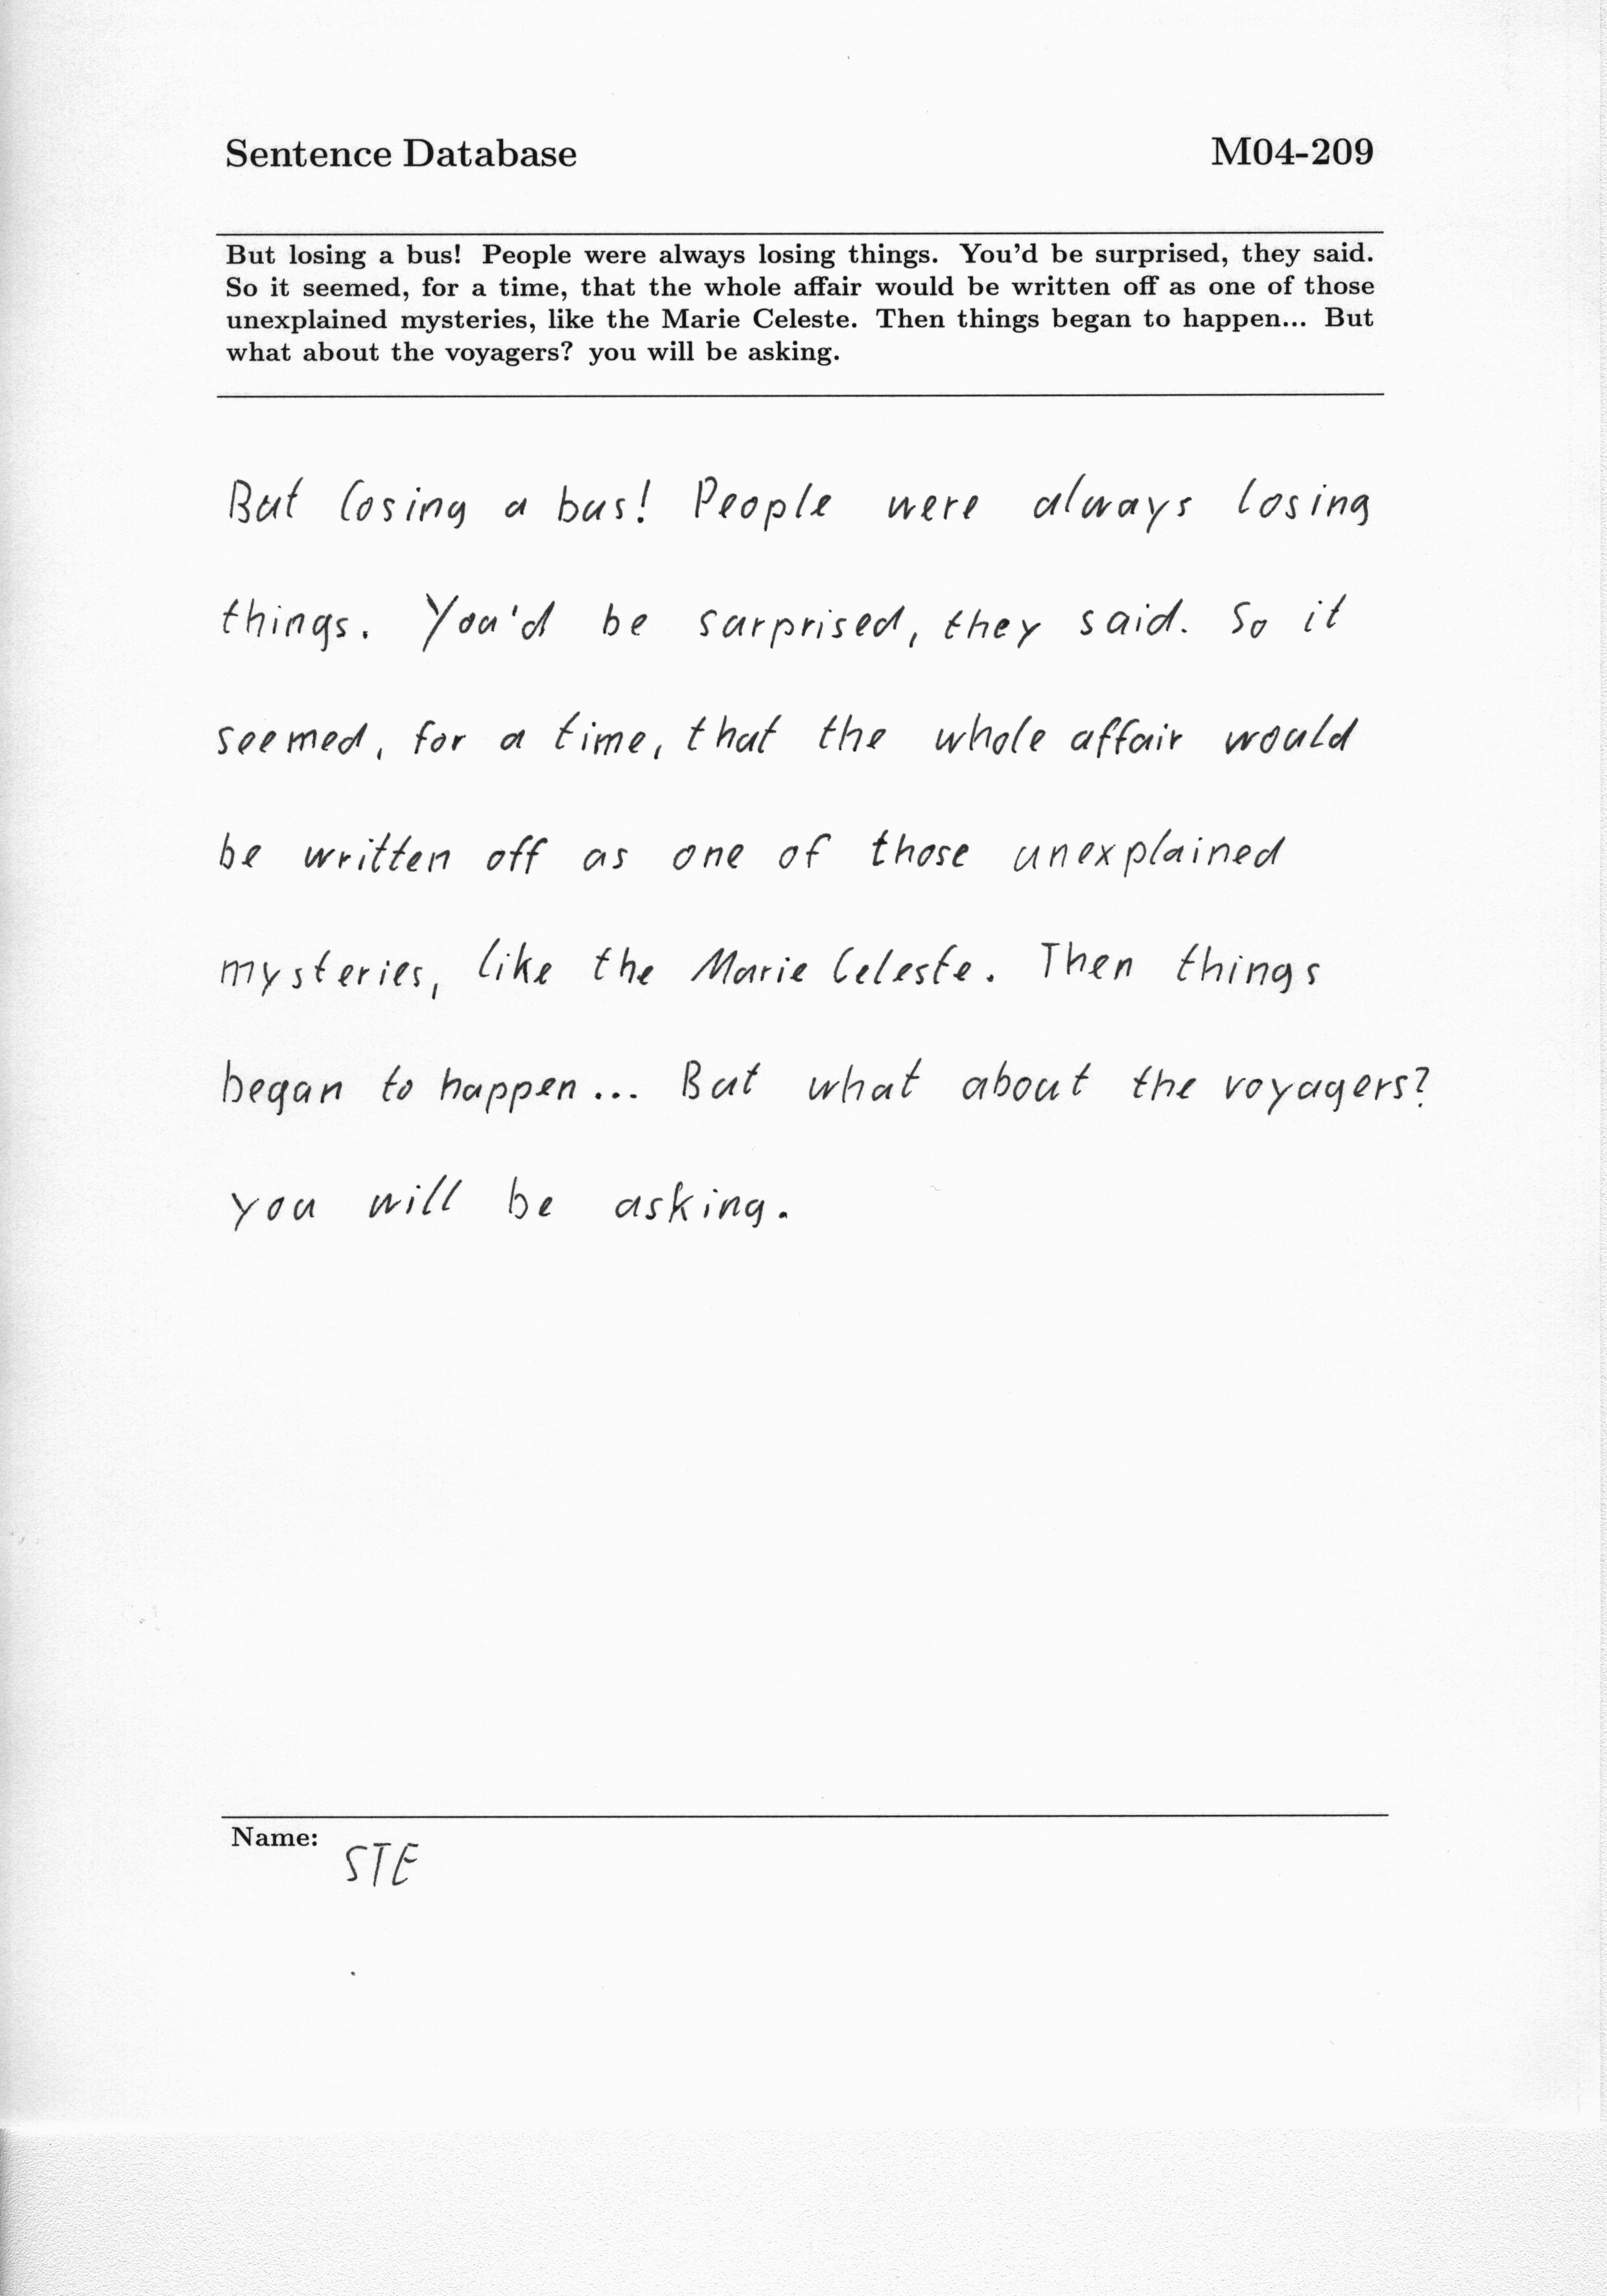 Sentence Database M04-209
But losing a bus! People were always losing things. You'd be surprised, they said.
So it seemed, for a time, that the whole affair would be written off as one of those
unexplained mysteries, like the Marie Celeste. Then things began to happen... But
what about the voyagers? you will be asking.
But losing a bus! People were always losing
things. You'd be surprised, they said. So it
seemed, for a time, that the whole affair would
be written off as one of those unexplained
mysteries, like the Marie Celeste. Then things
began to happen... But what about the voyagers?
you will be asking.
Name:
STE